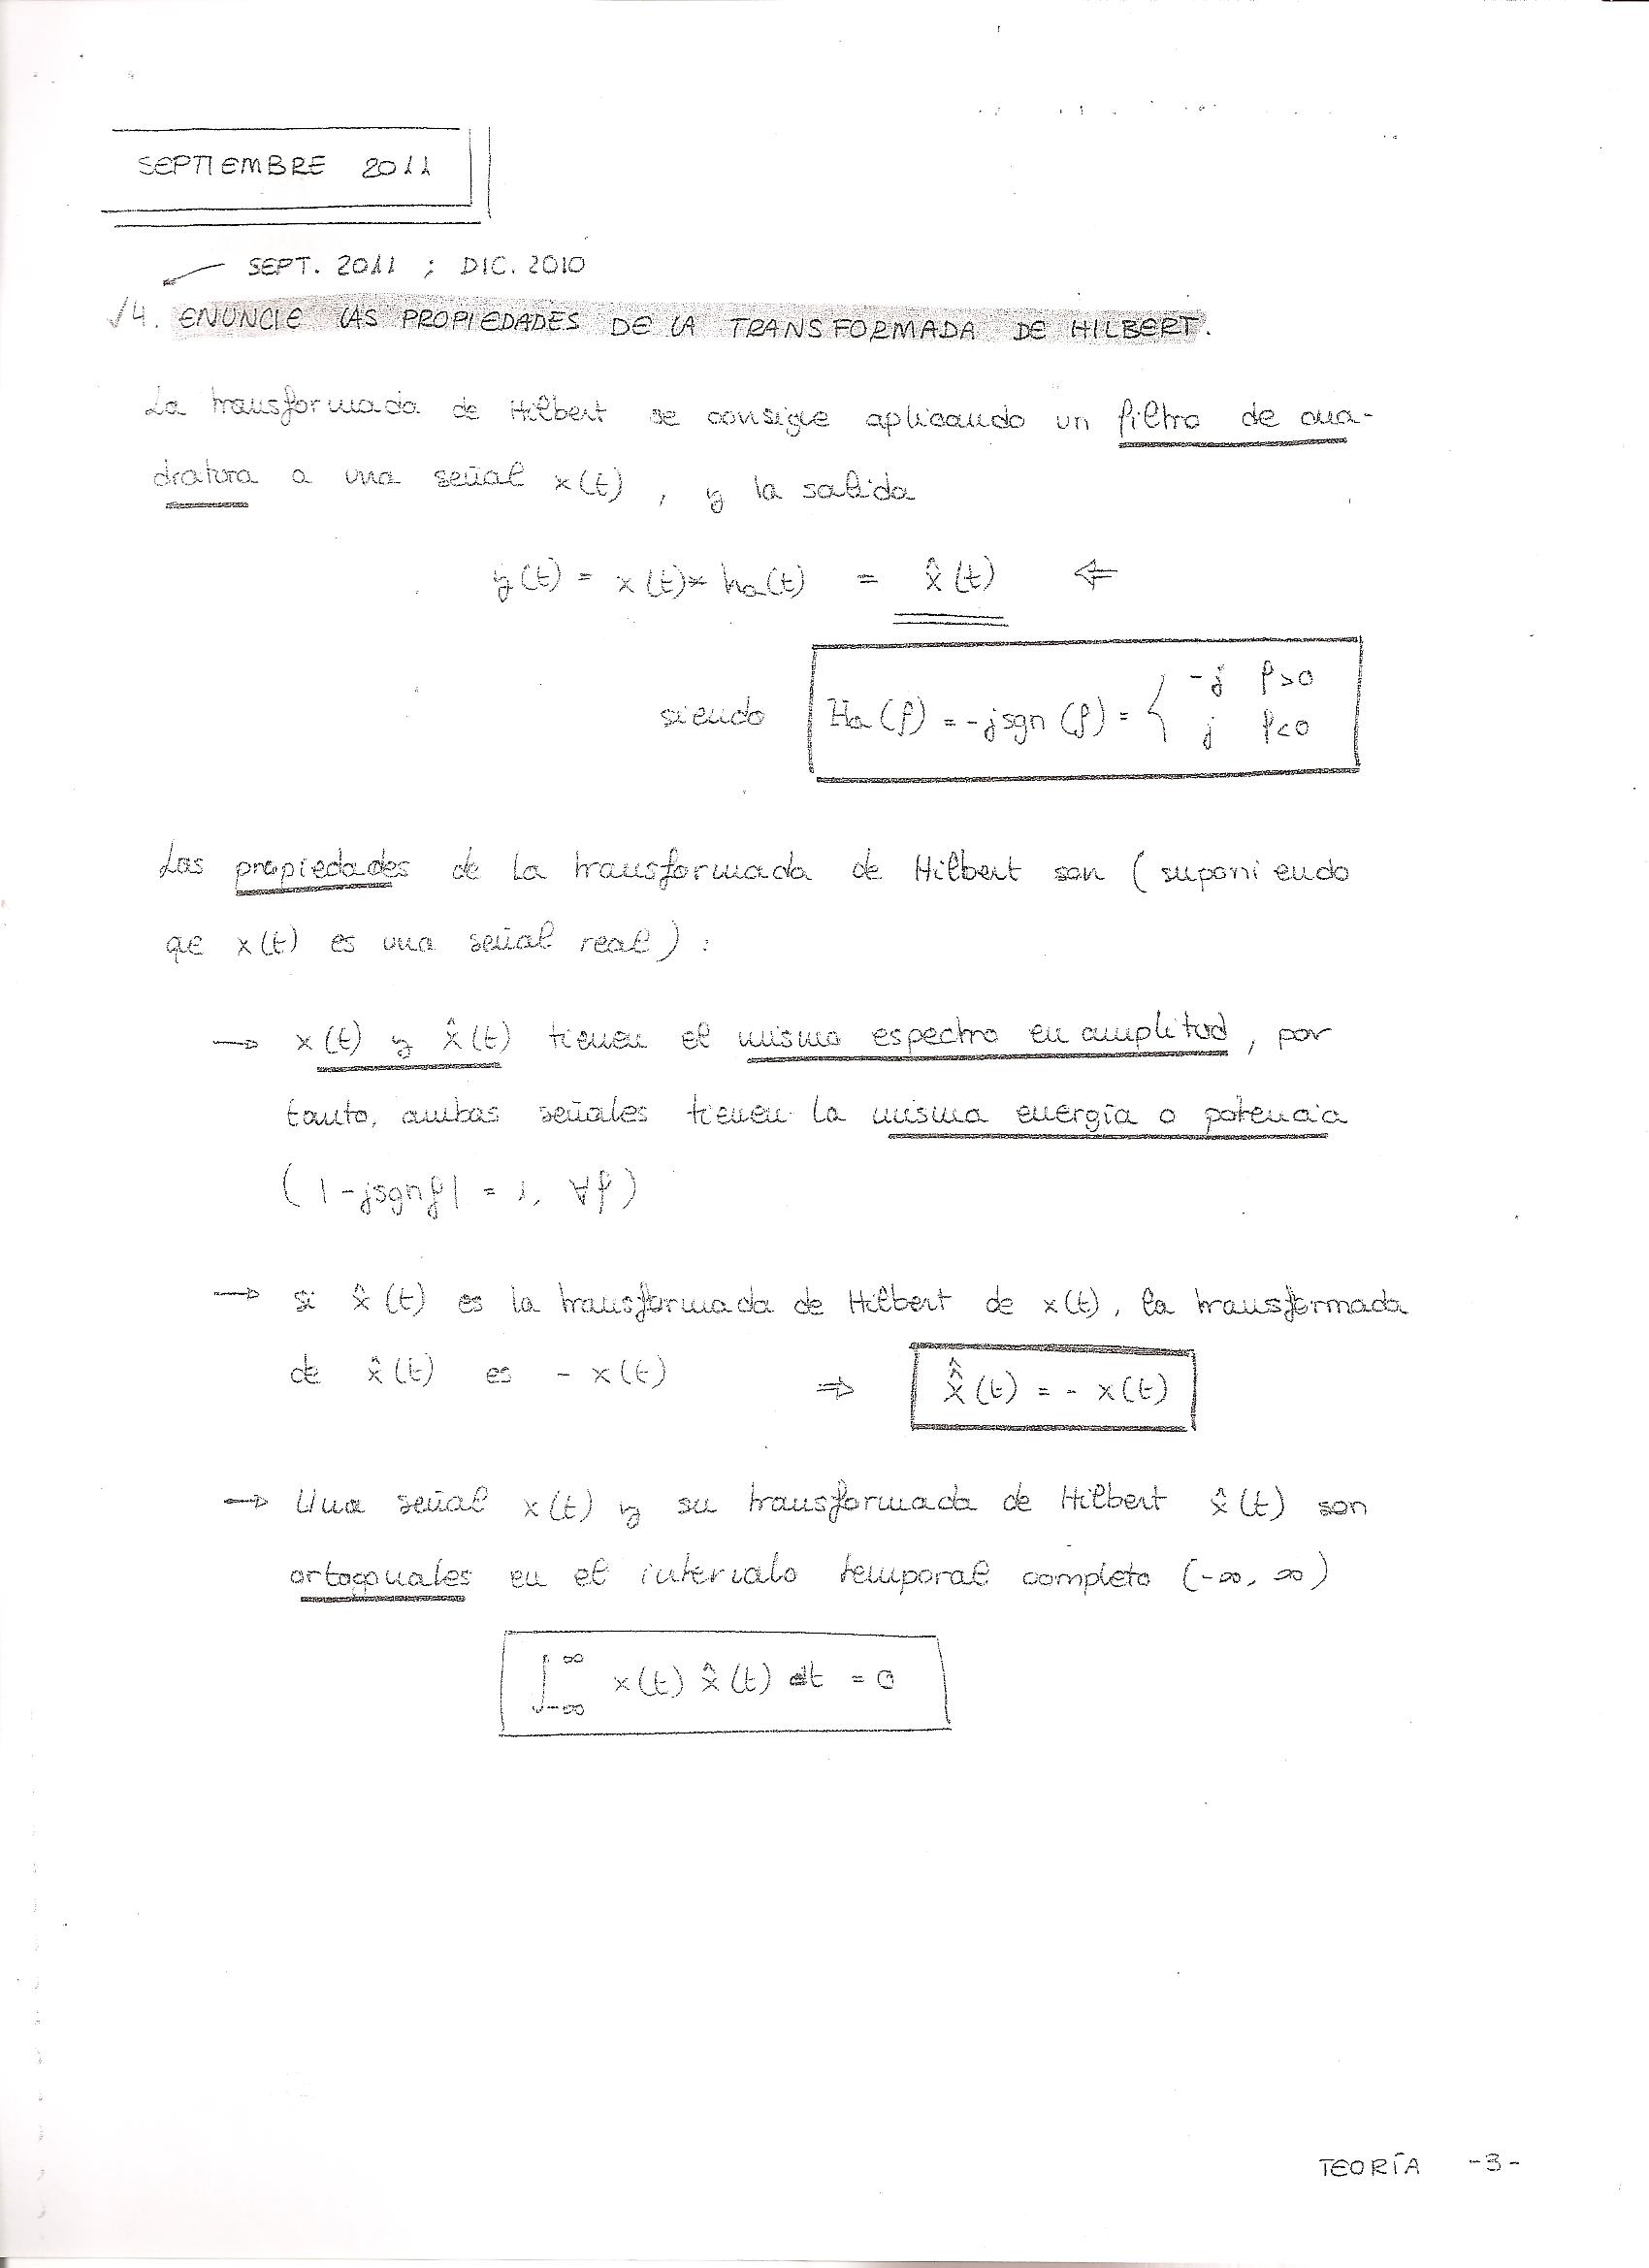 SEPTIEMBRE 2011
SEPT. 2011 ; DIC. 2010
√4. ENUNCIE LAS PROPIEDADES DE LA TRANSFORMADA DE HILBERT.
La transformada de Hilbert se consigue aplicando un filtro de cua-
dratura a una señal x(t), y la salida
y(t) = x(t)* ha(t) = x̂(t) ⇐
siendo Ha(f) = -jsgn(f) = { -j f>0
j f<0
Las propiedades de la transformada de Hilbert son (suponiendo
que x(t) es una señal real):
→ x(t) y x̂(t) tienen el mismo espectro en amplitud, por
tanto, ambas señales tienen la misma energía o potencia
(|-jsgnf| = 1, ∀f)
→ si x̂(t) es la transformada de Hilbert de x(t), la transformada
de x̂(t) es - x(t) ⇒ x̂̂(t) = - x(t)
→ Una señal x(t) y su transformada de Hilbert x̂(t) son
ortogonales en el intervalo temporal completo (-∞, ∞)
∫_{-∞}^{∞} x(t) x̂(t) dt = 0
TEORÍA -3-